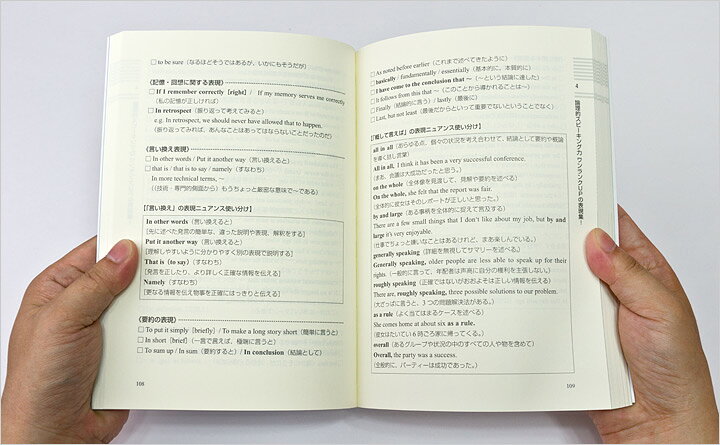 □ to be sure（なるほどそうではあるが、いかにもそうだが）
〈記憶・回想に関する表現〉
□ If I remember correctly [right] / If my memory serves me correctly
（私の記憶が正しければ）
□ In retrospect（振り返って考えてみると）
e.g. In retrospect, we should never have allowed that to happen.
（振り返ってみれば、あんなことはあってはならないことだったのだ）
〈言い換え表現〉
□ In other words / Put it another way（言い換えると）
□ that is / that is to say / namely（すなわち）
In more technical terms, ~
（（技術・専門的側面から）もうちょっと厳密な意味で〜である）
【「言い換え」の表現ニュアンス使い分け】
In other words（言い換えると）
[先に述べた発言の簡単な、違った説明や表現、解釈をする]
Put it another way（言い換えると）
[理解しやすいように分かりやすく別の表現で説明する]
That is (to say)（すなわち）
[発言を正したり、より詳しく正確な情報を伝える]
Namely（すなわち）
[更なる情報を伝え物事を正確にはっきりと伝える]
〈要約の表現〉
□ To put it simply [briefly] / To make a long story short（簡単に言うと）
□ In short [brief]（一言で言えば、極端に言うと）
□ To sum up / In sum（要約すると）/ In conclusion（結論として）
108
□ As noted before earlier（これまで述べてきたように）
□ basically / fundamentally / essentially（基本的に、本質的に）
□ I have come to the conclusion that ~（〜という結論に達した）
□ It follows from this that ~（このことから導かれることは〜）
□ Finally（結論的に言う）/ lastly（最後に）
□ Last, but not least（最後だからといって重要でないということでなく）
【「概して言えば」の表現ニュアンス使い分け】
all in all（あらゆる点、個々の状況を考え合わせて、結論として要約や概論を書く話し言葉）
All in all, I think it has been a very successful conference.
（まあ、会議は大成功だったと思う。）
on the whole（全体像を見渡して、見解や要約を述べる）
On the whole, she felt that the report was fair.
（全体的に彼女はそのレポートが正しいと思った。）
by and large（ある事柄を全体的に捉えて言及する）
There are a few small things that I don't like about my job, but by and
large it's very enjoyable.
（仕事でちょっと嫌いなことはあるけれど、まあ楽しんでいる。）
generally speaking（詳細を無視してサマリーを述べる。）
Generally speaking, older people are less able to speak up for their
rights.（一般的に言って、年配者は声高に自分の権利を主張しない。）
roughly speaking（正確ではないがおおよそは正しい情報を伝える）
There are, roughly speaking, three possible solutions to our problem.
（大ざっぱに言うと、3つの問題解決法がある。）
as a rule（よく当てはまるケースを述べる）
She comes home at about six as a rule.
（彼女はたいてい6時ごろ家に帰ってくる。）
overall（あるグループや状況の中のすべての人や物を含めて）
Overall, the party was a success.
（全般的に、パーティーは成功であった。）
109
4
論理的スピーキング力 ワンランクUPの表現集！